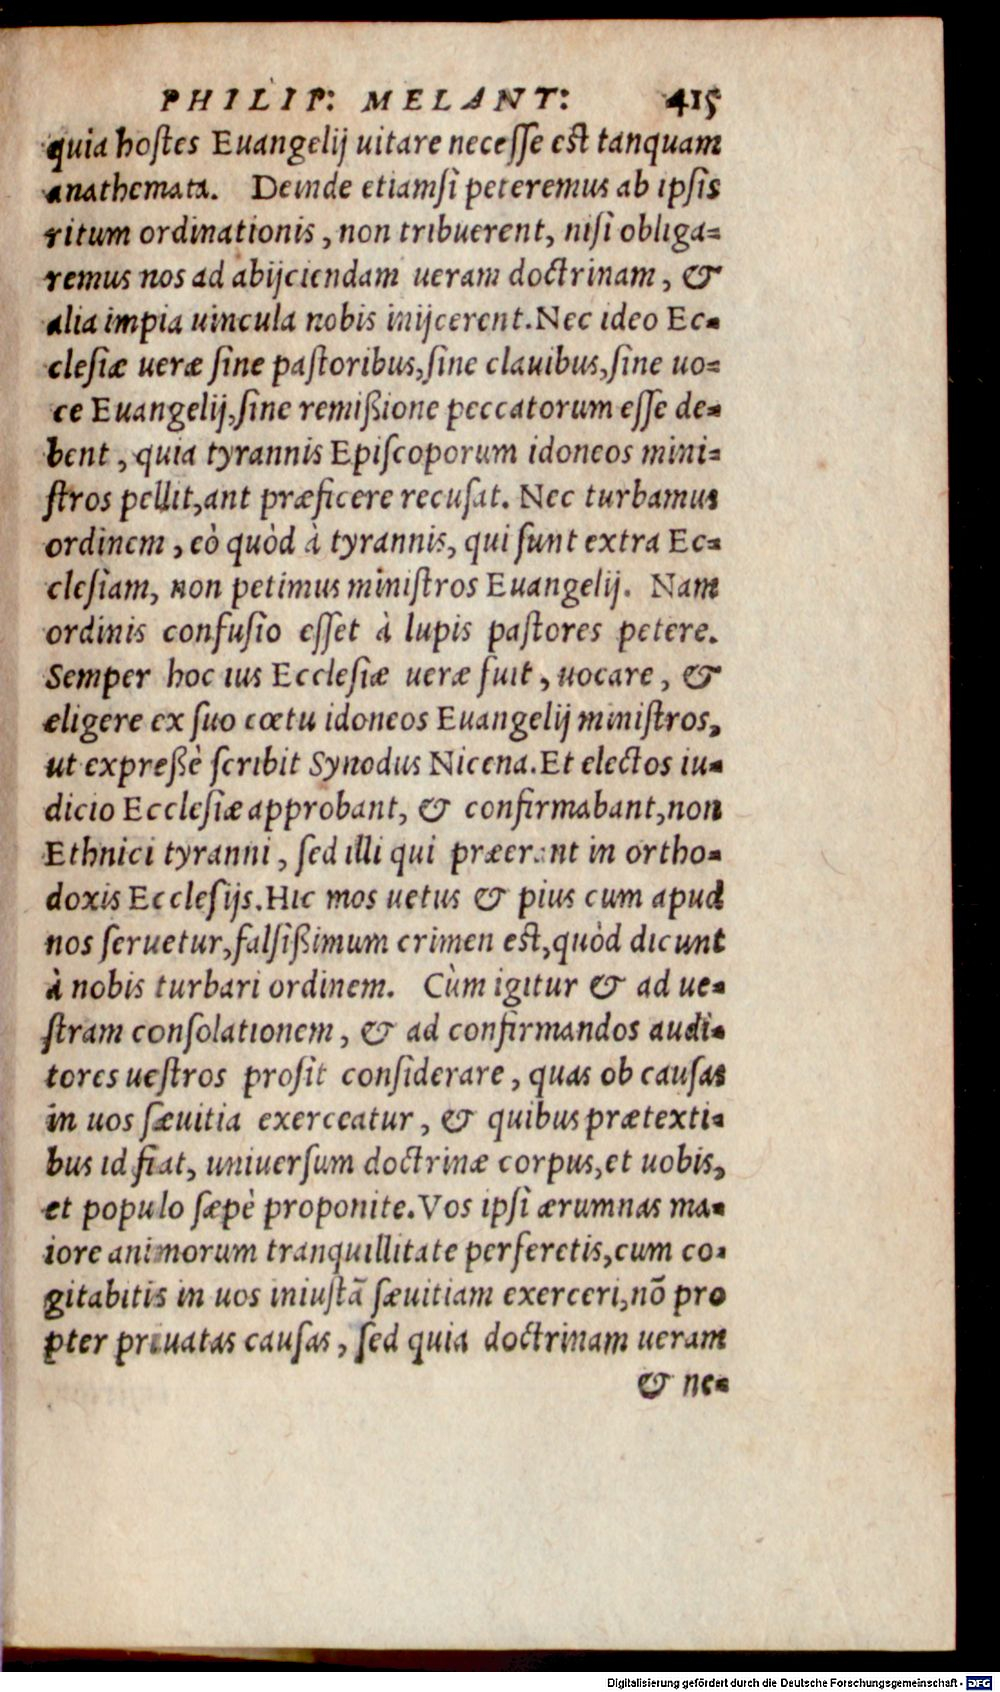 PHILIP: MELANT: 415
quia hoſtes Euangelij uitare neceſſe est tanquam
anathemata. Deinde etiamſi peteremus ab ipſis
ritum ordinationis, non tribuerent, niſi obliga=
remus nos ad abijciendam ueram doctrinam, &
alia impia uincula nobis inijcerent. Nec ideo Ec=
cleſiæ ueræ ſine paſtoribus, ſine clauibus, ſine uo=
ce Euangelij, ſine remißione peccatorum eſſe de=
bent, quia tyrannis Epiſcoporum idoneos mini=
ſtros pellit, ant præficere recuſat. Nec turbamus
ordinem, eò quòd à tyrannis, qui ſunt extra Ec=
cleſiam, non petimus miniſtros Euangelij. Nam
ordinis confuſio eſſet à lupis paſtores petere.
Semper hoc ius Eccleſiæ ueræ fuit, uocare, &
eligere ex ſuo cœtu idoneos Euangelij miniſtros,
ut expreßè ſcribit Synodus Nicena. Et electos iu=
dicio Eccleſiæ approbant, & confirmabant, non
Ethnici tyranni, ſed illi qui præerant in ortho=
doxis Eccleſijs. Hic mos uetus & pius cum apud
nos ſeruetur, falſißimum crimen est, quòd dicunt
à nobis turbari ordinem. Cùm igitur & ad ue=
ſtram conſolationem, & ad confirmandos audi=
tores ueſtros proſit conſiderare, quas ob cauſas
in uos ſæuitia exerceatur, & quibus prætexti=
bus id fiat, uniuerſum doctrinæ corpus, et uobis,
et populo ſæpè proponite. Vos ipſi ærumnas ma=
iore animorum tranquillitate perferetis, cum co=
gitabitis in uos iniuſtã ſæuitiam exerceri, nõ pro
pter priuatas cauſas, ſed quia doctrinam ueram
& ne=
Digitalisierung gefördert durch die Deutsche Forschungsgemeinschaft - DFG